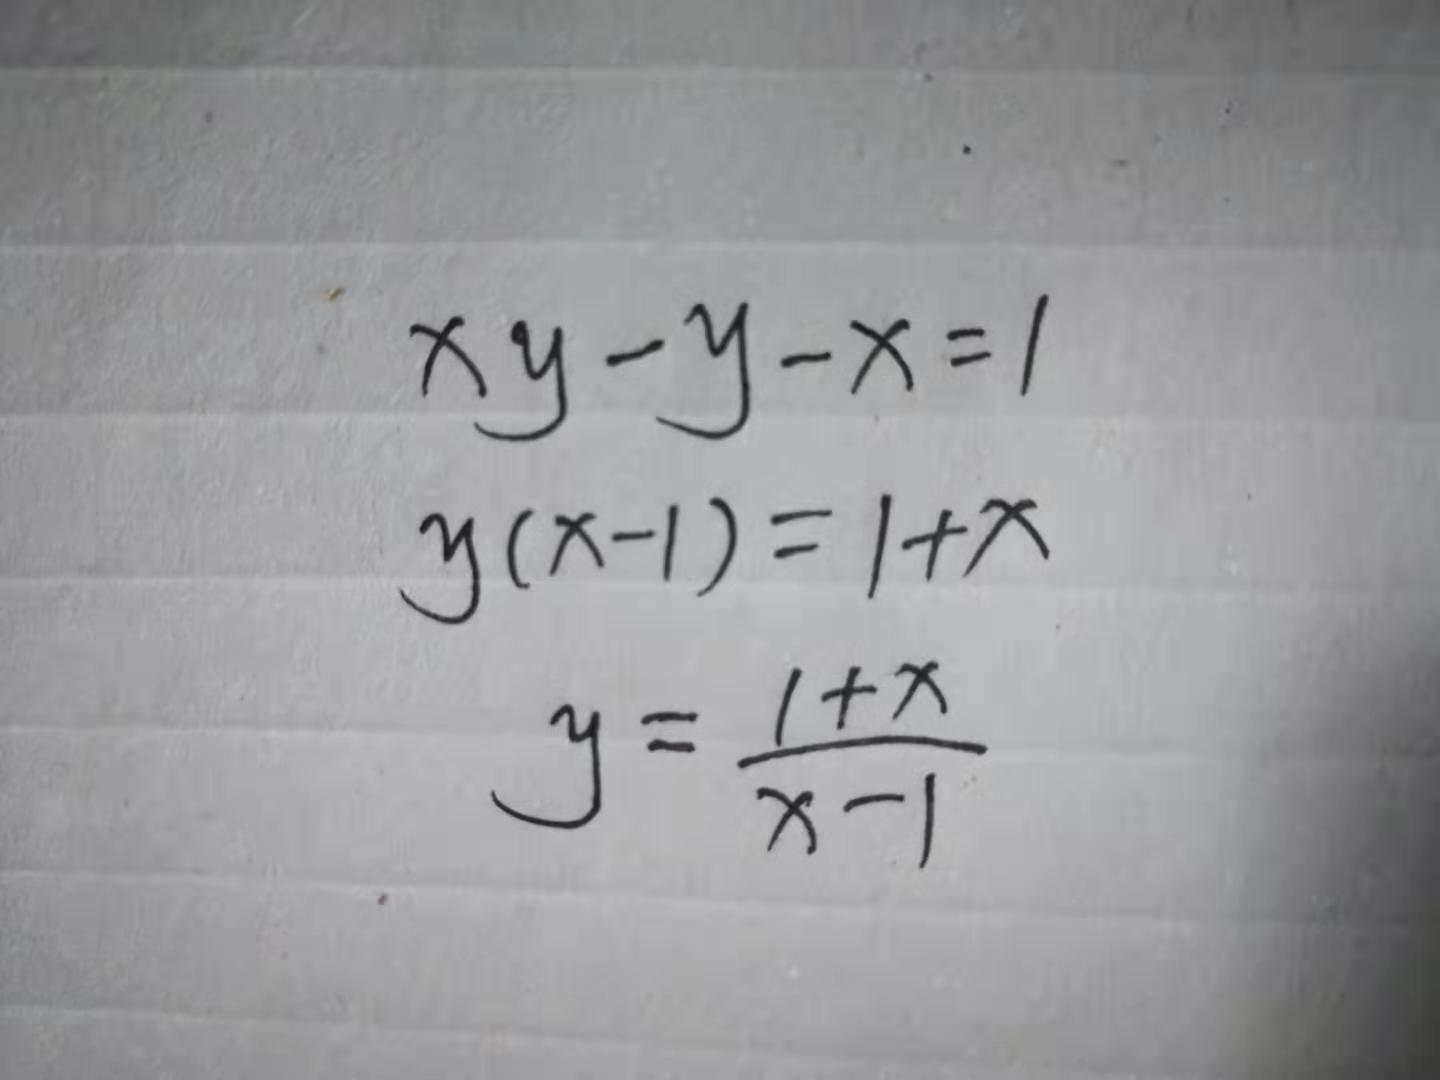 xy-y-x=1
y(x-1)=1+x
y=\frac{1+x}{x-1}